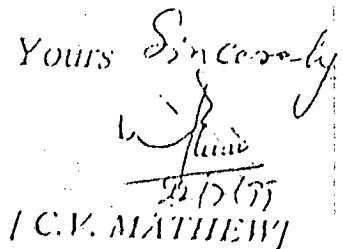 Yours Sincerely
[C.V. MATHEW]